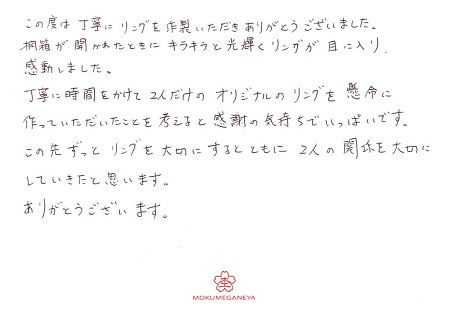 この度は丁寧にリングを作製いただきありがとうございました。
桐箱が開かれたときにキラキラと光輝くリングが目に入り、
感動しました。
丁寧に時間をかけて2人だけのオリジナルのリングを懸命に
作っていただいたことを考えると感謝の気持ちでいっぱいです。
この先ずっとリングを大切にするとともに2人の関係を大切に
していきたと思います。
ありがとうございます。
MOKUMEGANEYA